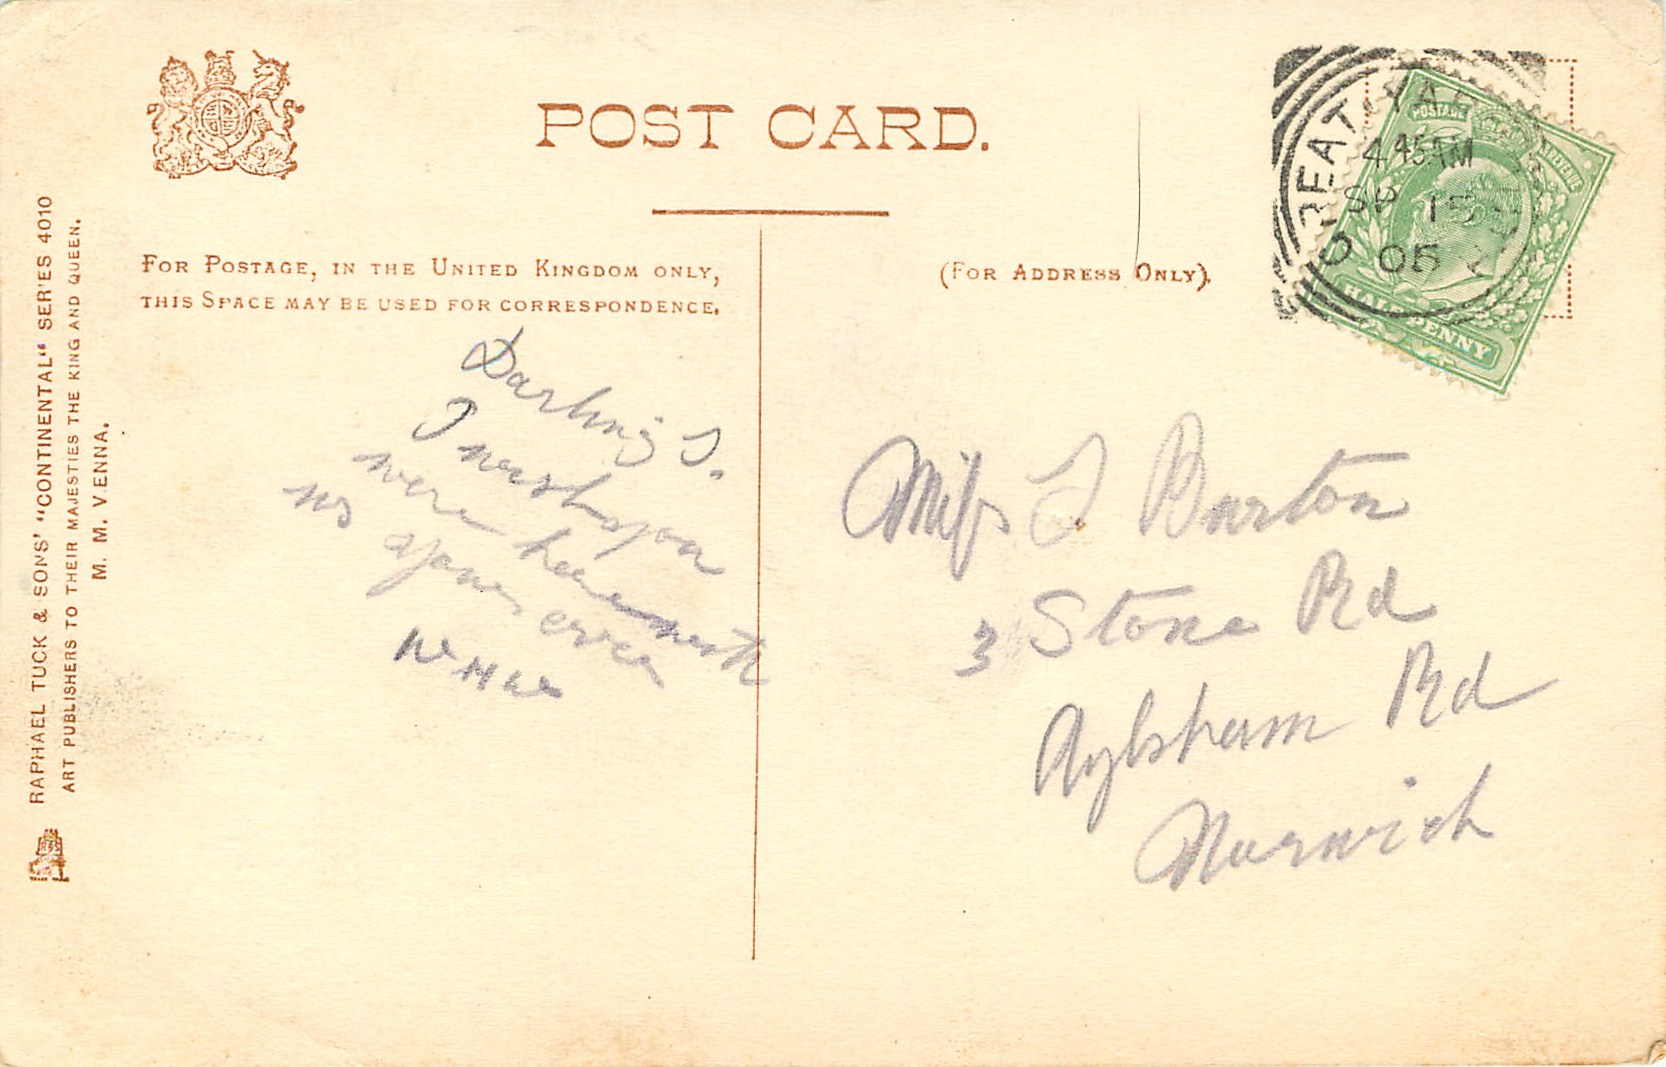 POST CARD.
FOR POSTAGE, IN THE UNITED KINGDOM ONLY,
THIS SPACE MAY BE USED FOR CORRESPONDENCE.
(FOR ADDRESS ONLY).
RAPHAEL TUCK & SONS' "CONTINENTAL" SERIES 4010
ART PUBLISHERS TO THEIR MAJESTIES THE KING AND QUEEN.
M. M. VIENNA.
GREAT YARMOUTH
4 45 AM
SP 15
05
POSTAGE
HALF PENNY
Darling J.
I wish you
were here with
us
Yours ever
Miss J Burton
3 Stone Rd
Aylsham Rd
Norwich